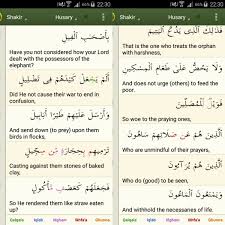 22:30
Shakir
Husary
بِأَصْحَابِ الْفِيلِ
Have you not considered how your Lord
dealt with the possessors of the
elephant?
أَلَمْ يَجْعَلْ كَيْدَهُمْ فِي تَضْلِيلٍ
Did He not cause their war to end in
confusion,
وَأَرْسَلَ عَلَيْهِمْ طَيْرًا أَبَابِيلَ
And send down (to prey) upon them
birds in flocks,
تَرْمِيهِم بِحِجَارَةٍ مِّن سِجِّيلٍ
Casting against them stones of baked
clay,
فَجَعَلَهُمْ كَعَصْفٍ مَّأْكُولٍ
So He rendered them like straw eaten
up?
Qalqala Iqlab Idgham Ikhfa'a Ghunna
22:30
Shakir
Husary
فَذَٰلِكَ الَّذِي يَدُعُّ الْيَتِيمَ
That is the one who treats the orphan
with harshness,
وَلَا يَحُضُّ عَلَىٰ طَعَامِ الْمِسْكِينِ
And does not urge (others) to feed the
poor.
فَوَيْلٌ لِّلْمُصَلِّينَ
So woe to the praying ones,
الَّذِينَ هُمْ عَن صَلَاتِهِمْ سَاهُونَ
Who are unmindful of their prayers,
الَّذِينَ هُمْ يُرَاءُونَ
Who do (good) to be seen,
وَيَمْنَعُونَ الْمَاعُونَ
And withhold the necessaries of life.
Qalqala Iqlab Idgham Ikhfa'a Ghunna